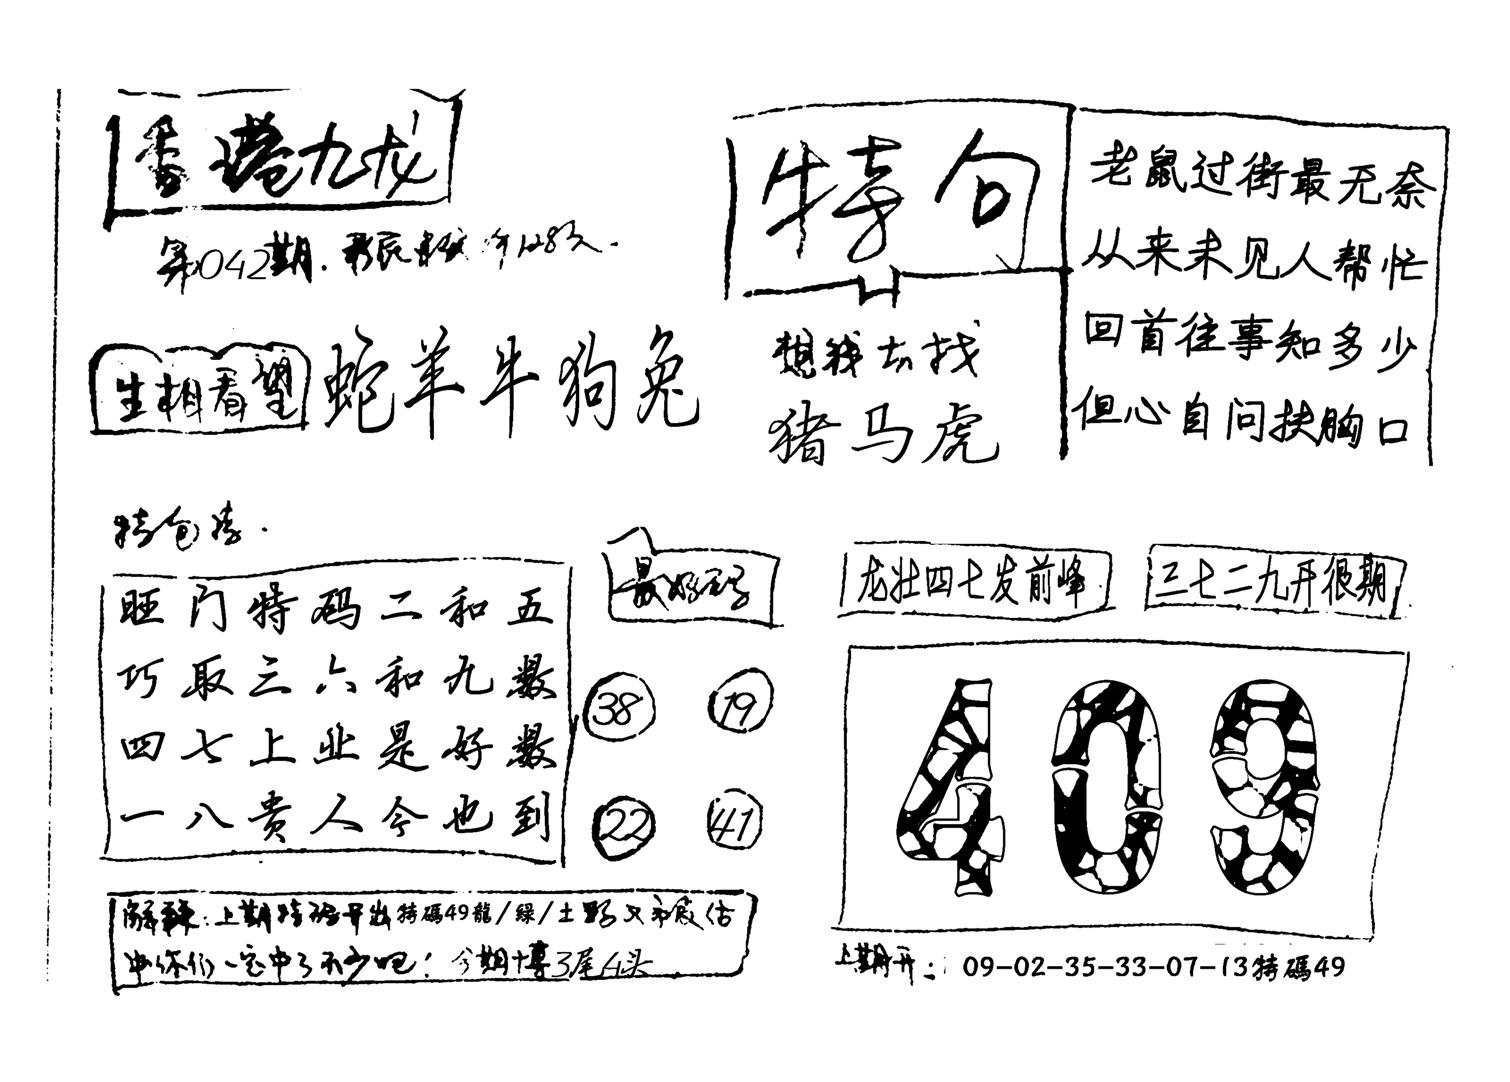 香港九龙
第042期.
生相看望
蛇羊牛狗兔
特句
想钱去找
猪马虎
老鼠过街最无奈
从来未见人帮忙
回首往事知多少
但心自问扶胸口
特包诗.
旺门特码二和五
巧取三六和九数
四七上业是好数
一八贵人今也到
最好码
38 19
22 41
龙壮四七发前峰
三七二九开很期
409
解释:上期特码开出特碼49龍/绿/土
你们一定中了不少吧!今期博3尾4头
上期开: 09-02-35-33-07-13特碼49